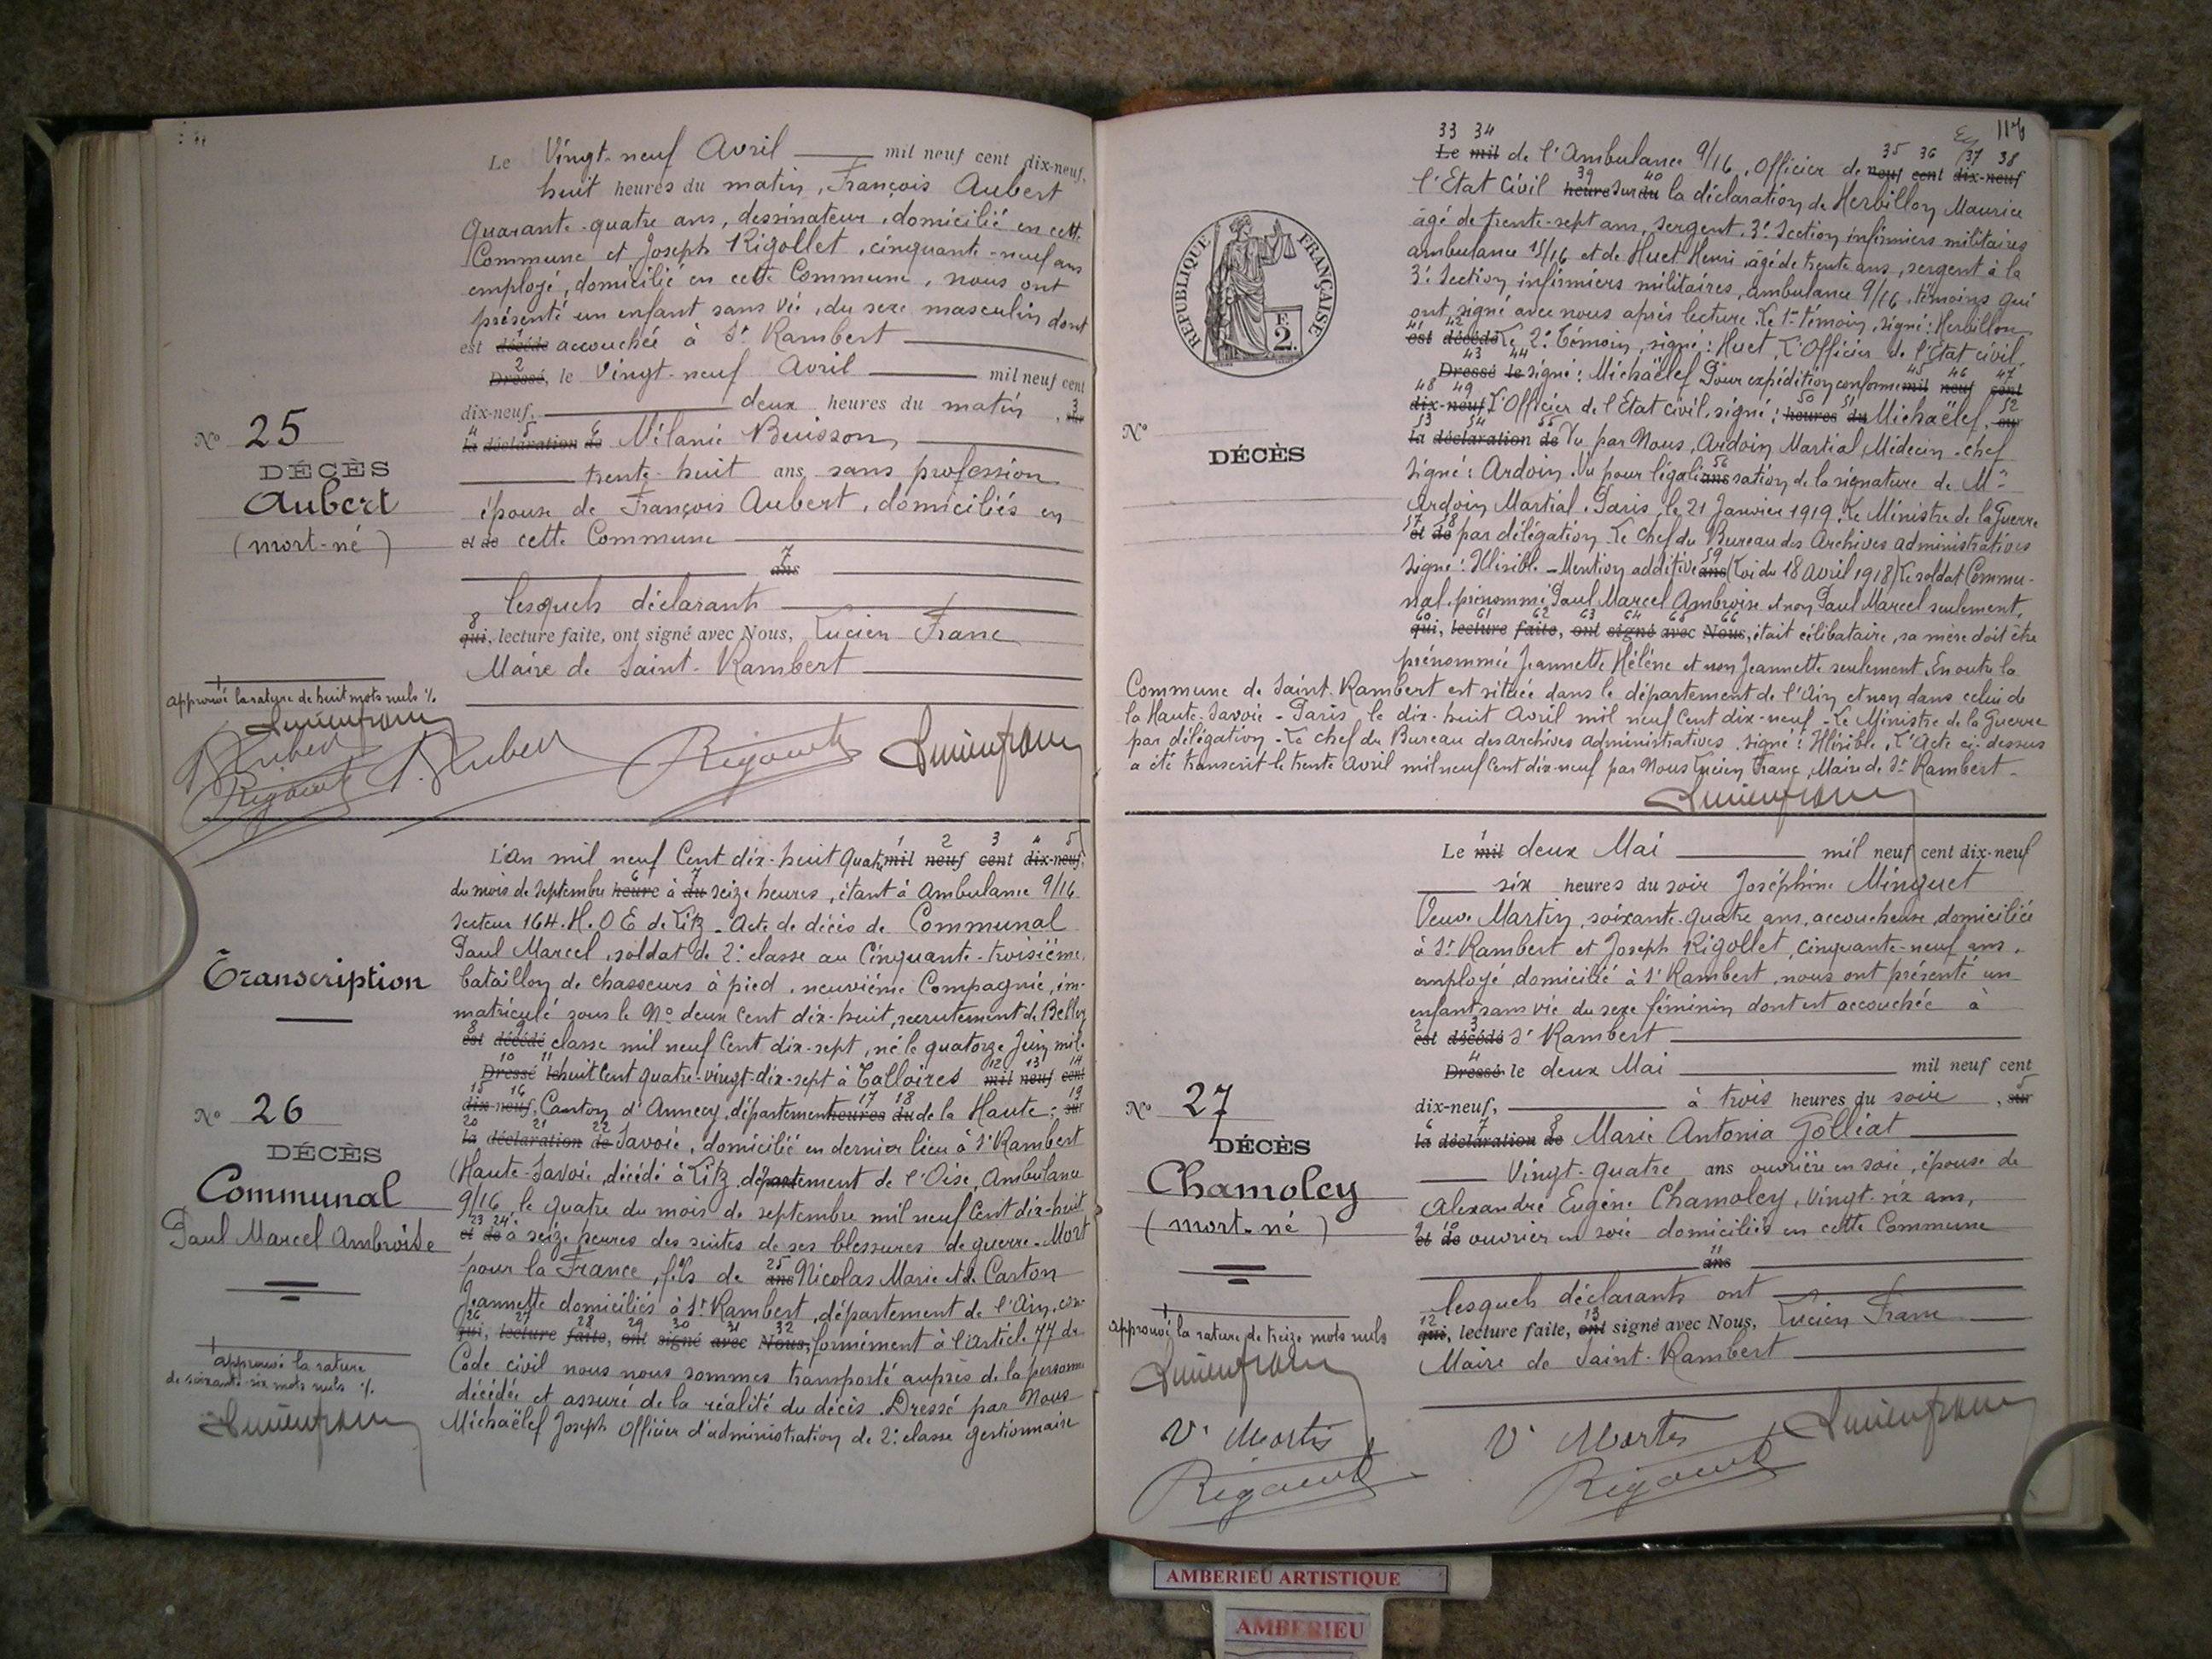 Le Vingt-neuf Avril mil neuf cent dix-neuf,
huit heures du matin, François Aubert
quarante-quatre ans, dessinateur, domicilié en cette
Commune et Joseph Rigollet, cinquante-neuf ans
employé, domicilié en cette Commune, nous ont
présenté un enfant sans vie, du sexe masculin dont
est décédé accouchée à St Rambert
2
Dressé, le Vingt-neuf Avril mil neuf cent
dix-neuf, deux heures du matin, sur
3
4 5 6
la déclaration de Mélanie Buisson,
trente-huit ans, sans profession
épouse de François Aubert, domiciliés en
et de cette Commune
7
ans
lesquels déclarants
8
qui, lecture faite, ont signé avec Nous, Lucien Franc
Maire de Saint-Rambert
No 25
DÉCÈS
Aubert
(mort-né)
approuvé la rature de huit mots nuls %
Transcription
No 26
DÉCÈS
Communal
Paul Marcel Ambroise
approuvé la rature
de soixante-six mots nuls %
1 2 3 4 5
L'an mil neuf Cent dix-huit quatre mil neuf cent dix-neuf,
6 7
du mois de Septembre heure à du seize heures, étant à Ambulance 9/16
Secteur 164. H.O E de Litz - Acte de décès de Communal
Paul Marcel, soldat de 2e classe au Cinquante-troisième
bataillon de chasseurs à pied, neuvième Compagnie, im-
matriculé sous le No deux Cent dix-huit, recrutement de Belley
8 9
est décédé classe mil neuf Cent dix-sept, né le quatorze Juin mil-
10 11 12 13 14
Dressé le huit Cent quatre-vingt-dix-sept à Talloires mil neuf cent
15 16 17 18 19
dix-neuf, Canton d'Annecy, département heures du de la Haute- sur
20 21 22
la déclaration de Savoie, domicilié en dernier lieu à St Rambert
(Haute-Savoie, décédé à Litz département de l'Oise, Ambulance
9/16, le quatre du mois de septembre mil neuf Cent dix-huit
23 24
et de à seize heures des suites de ses blessures de guerre - Mort
25
pour la France, fils de ans Nicolas Marie et de Carton
Jeannette domiciliés à St Rambert, département de l'Ain, con-
26 27 28 29 30 31 32
qui, lecture faite, ont signé avec Nous, formément à l'Article 77 du
Code civil nous nous sommes transporté auprès de la personne
décédée et assuré de la réalité du décès. Dressé par Nous
Michaëlef Joseph Officier d'administration de 2e classe gestionnaire
33 34 35 36 37 38
Le mil de l'Ambulance 9/16, Officier de neuf cent dix-neuf
39 40
l'Etat Civil heure sur du la déclaration de Herbillon Maurice
âgé de trente-sept ans, sergent, 3e Section infirmiers militaires
ambulance 15/16 et de Huet Henri, âgé de trente ans, sergent à la
3e Section infirmiers militaires, ambulance 9/16, témoins qui
ont signé avec nous après lecture. Le 1er témoin, signé : Herbillon
41 42
est décédé Le 2e Témoin, signé : Huet, L'Officier de l'Etat civil,
43 44 45 46 47
Dressé le signé : Michaëlef Pour expédition conforme mil neuf cent
48 49 50 51 52
dix-neuf, L'Officier de l'Etat civil, signé : heures du Michaëlef, sur
53 54 55
la déclaration de Vu par Nous, Ardoin Martial, Médecin-chef
56
signé : Ardoin. Vu pour légali ans sation de la signature de Mr
Ardoin Martial. Paris, le 21 Janvier 1919. Le Ministre de la Guerre
57 58
et de par délégation Le chef du Bureau des Archives administratives
59
Signé : Illisible - Mention additive ans (Loi du 18 Avril 1918) Le soldat Commu-
nal, prénommé Paul Marcel Ambroise et non Paul Marcel seulement,
60 61 62 63 64 65 66
qui, lecture faite, ont signé avec Nous, était célibataire, sa mère doit être
prénommée Jeannette Hélène et non Jeannette seulement. En outre la
Commune de Saint-Rambert est située dans le département de l'Ain et non dans celui de
la Haute-Savoie - Paris le dix-huit Avril mil neuf Cent dix-neuf - Le Ministre de la Guerre
par délégation - Le chef du Bureau des archives administratives, signé : Illisible. L'Acte ci-dessus
a été transcrit le trente Avril mil neuf Cent dix-neuf par Nous Lucien Franc, Maire de St Rambert -
REPUBLIQUE FRANÇAISE
F.
2.
No
DÉCÈS
1
Le mil deux Mai mil neuf cent dix-neuf
six heures du soir Joséphine Minguet
Veuve Martin, soixante-quatre ans, accoucheuse, domiciliée
à St Rambert et Joseph Rigollet, Cinquante-neuf ans,
employé domicilié à St Rambert, nous ont présenté un
enfant sans vie du sexe féminin dont est accouchée à
2 3
est décédé St Rambert
4
Dressé le deux Mai mil neuf cent
5
dix-neuf, à trois heures du soir, sur
6 7 8
la déclaration de Marie Antonia Golliat
Vingt-quatre ans ouvrière en soie, épouse de
Alexandre Eugène Chamoley, Vingt-six ans,
9 10
et de ouvrier en soie domiciliés en cette Commune
11
ans
lesquels déclarants ont
12 13
qui, lecture faite, ont signé avec Nous, Lucien Franc
Maire de Saint-Rambert
No 27
DÉCÈS
Chamoley
(mort-né)
approuvé la rature de treize mots nuls
AMBERIEU ARTISTIQUE
AMBERIEU